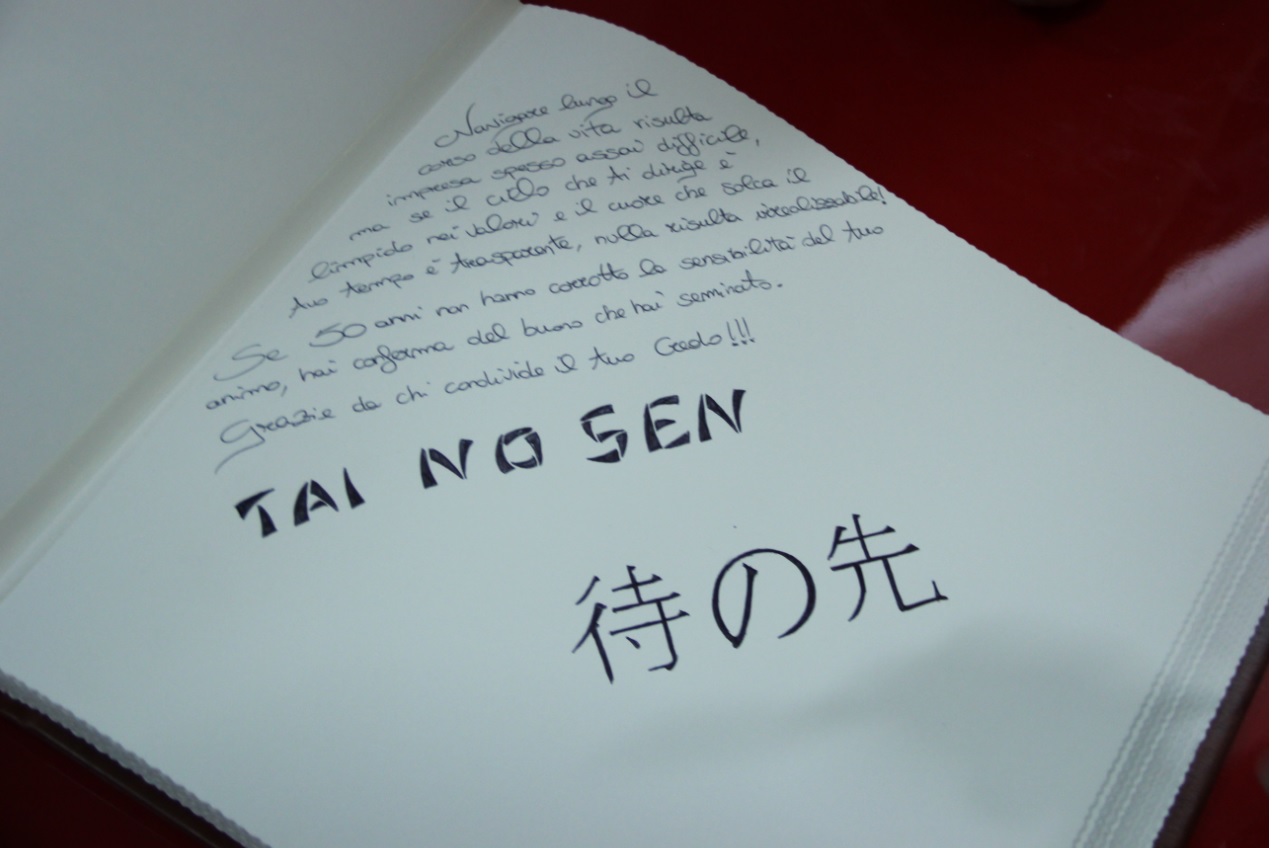 Navigare lungo il
corso della vita risulta
impresa spesso assai difficile,
ma se il cielo che ti dirige è
limpido nei valori e il cuore che solca il
tuo tempo è trasparente, nulla risulta irrealizzabile!
Se 50 anni non hanno corrotto la sensibilità del tuo
animo, hai conferma del buono che hai seminato.
Grazie da chi condivide il tuo Credo!!!
TAI NO SEN
待の先